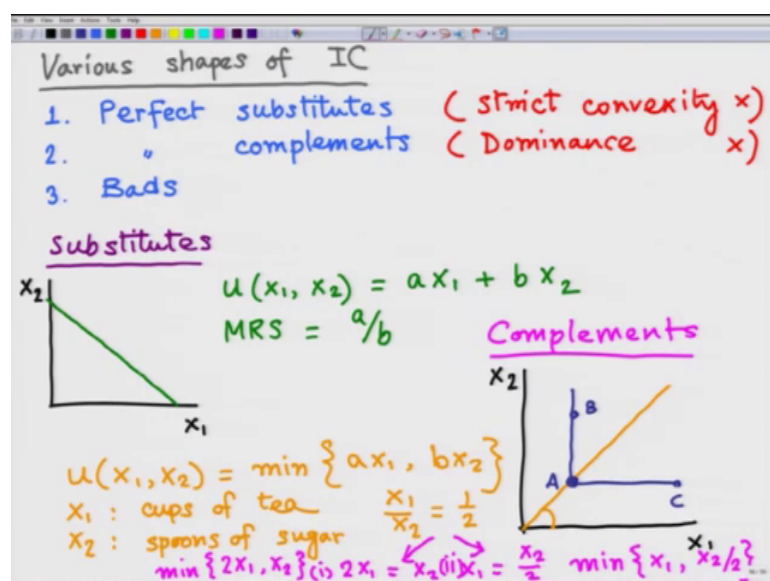 File Edit View Insert Actions Tools Help
Various shapes of IC
1. Perfect substitutes (strict convexity x)
2. " complements (Dominance x)
3. Bads
Substitutes
x₂
x₁
u(x₁, x₂) = ax₁ + bx₂
MRS = a/b
Complements
x₂
B
A
C
x₁
u(x₁, x₂) = min {ax₁, bx₂}
x₁ : cups of tea x₁/x₂ = 1/2
x₂ : spoons of sugar
min{2x₁, x₂} (i) 2x₁ = x₂ (ii) x₁ = x₂/2 min{x₁, x₂/2}